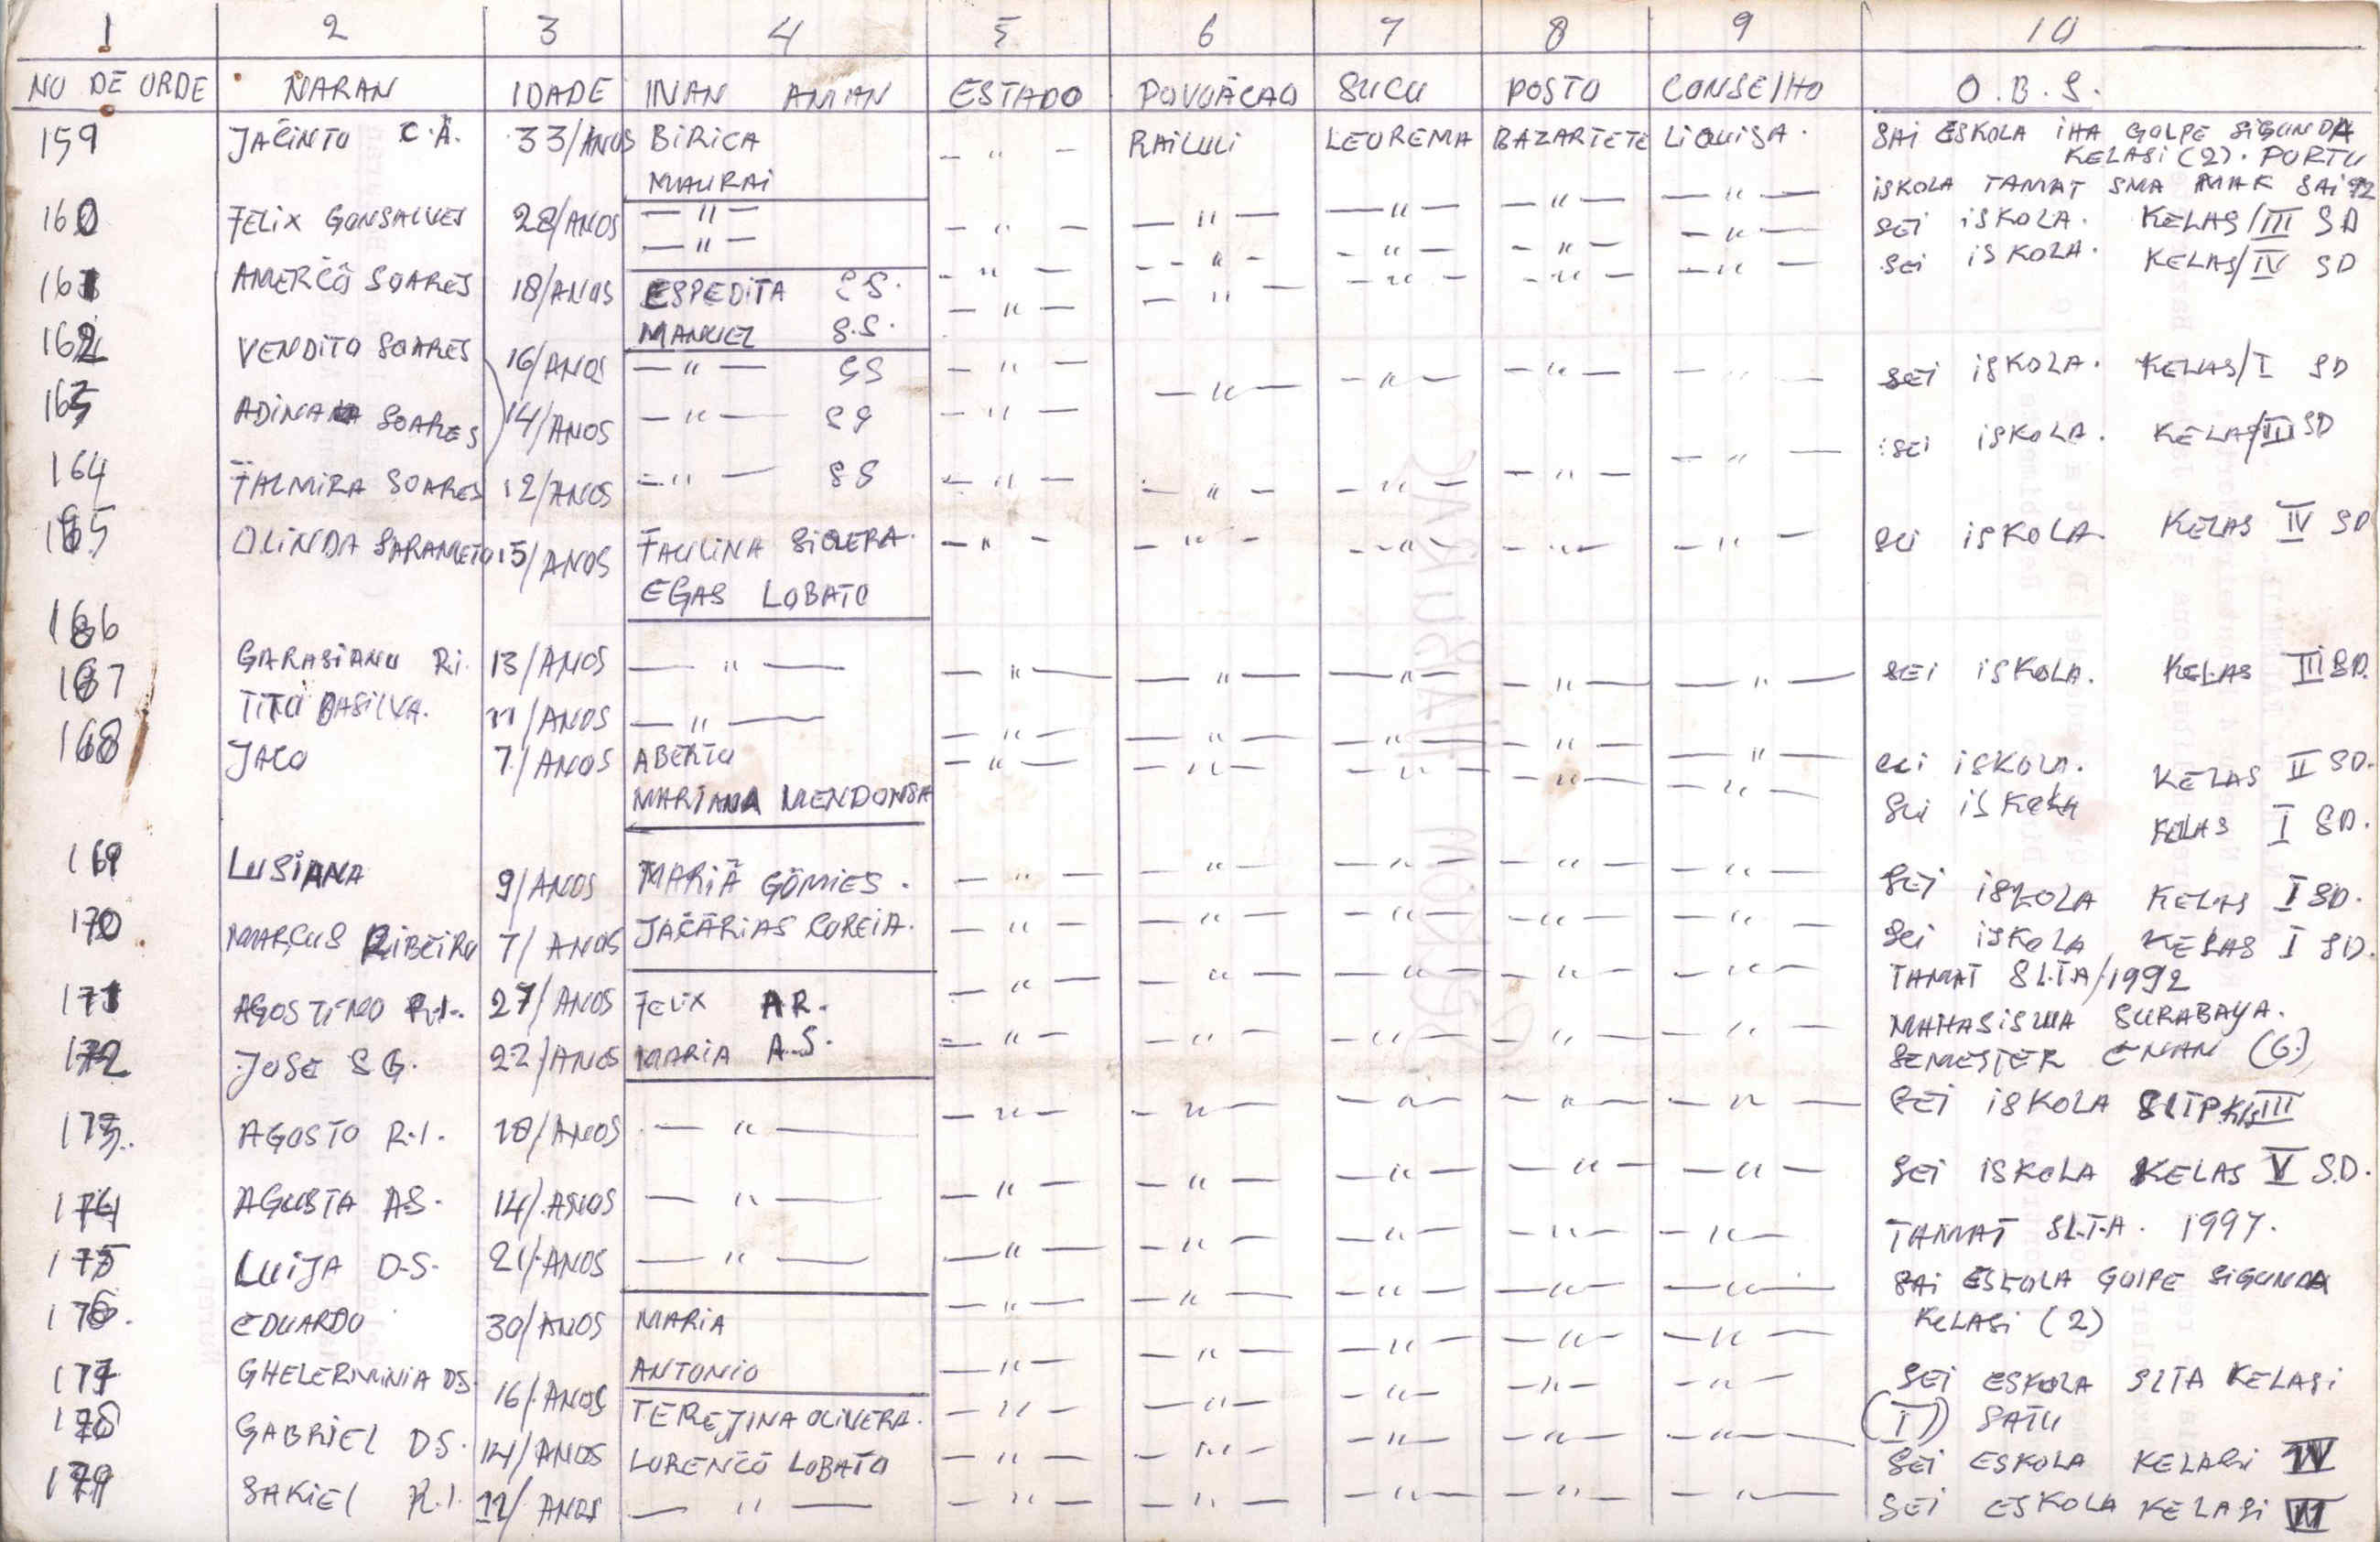 1 2 3 4 5 6 7 8 9 10
NO DE ORDE NARAN IDADE INAN AMAN ESTADO POVOÃCAO SUCU POSTO CONSELHO O.B.S.
159 JACINTO C.A. 33/ANOS BIRICA — " — RAILULI LEOREMA BAZARTETE LIQUISA. SAI ESKOLA IHA GOLPE SIGUNDA
MAURAI KELASI (2). PORTU
ISKOLA TAMAT SMA SAI 92
160 FELIX GONSALVES 28/ANOS — " — — " — — " — — " — — " — — " — SEI ISKOLA. KELAS/III SD
— " —
161 AMERCO SOARES 18/ANOS ESPEDITA S.S. — " — — " — — " — — " — — " — SEI ISKOLA. KELAS/IV SD
MANUEL S.S.
162 VENDITO SOARES 16/ANOS — " — SS — " — — " — — " — — " — — " — SEI ISKOLA. KELAS/I SD
163 ADINA SOARES 14/ANOS — " — SS — " — — " — SEI ISKOLA. KELAS/III SD
164 FALMIRA SOARES 12/ANOS — " — SS — " — — " — — " — — " —
165 OLINDA SARAMETO 15/ANOS FAULINA SIQERA. — " — — " — — " — — " — — " — SEI ISKOLA. KELAS IV SD
EGAS LOBATO
166 GARASIANO RI. 13/ANOS — " — — " — — " — — " — — " — — " — SEI ISKOLA. KELAS III SD.
167 TITO DASILVA. 11/ANOS — " — — " — — " — — " — — " — — " — SEI ISKOLA. KELAS II SD.
168 JACO 7/ANOS ABERTO — " — — " — — " — — " — — " — SEI ISKOLA KELAS I SD.
MARIANA MENDONSA
169 LUSIANA 9/ANOS MARIÃ GÕMIES. — " — — " — — " — — " — — " — SEI ISKOLA KELAS I SD.
170 MARCUS RIBEIRO 7/ANOS JACÃRIAS COREIA. — " — — " — — " — — " — — " — SEI ISKOLA KELAS I SD.
171 AGOSTINO R.I. 27/ANOS FELIX A.R. — " — — " — — " — — " — — " — TAMAT SLTA/1992
MAHASISWA SURABAYA.
172 JOSE S G. 22/ANOS MARIA A.S. — " — — " — — " — — " — — " — SEMESTER ENAM (6)
173. AGOSTO R.I. 18/ANOS — " — — " — — " — — " — — " — — " — SEI ISKOLA SLTP III
174 AGUSTA A.S. 14/ANOS — " — — " — — " — — " — — " — — " — SEI ISKOLA KELAS V S.D.
175 LUIJA D.S. 21/ANOS — " — — " — — " — — " — — " — — " — TAMAT SLTA. 1997.
176. EDUARDO 30/ANOS MARIA — " — — " — — " — — " — — " — SAI ESKOLA GOLPE SIGUNDA
KELASI (2)
177 GHELERMINIA D.S. 16/ANOS ANTONIO — " — — " — — " — — " — — " — SEI ESKOLA SLTA KELASI
TEREJINA OLIVERA. — " — — " — — " — — " — — " — (I) SATU
178 GABRIEL D.S. 14/ANOS LORENCÕ LOBATO — " — — " — — " — — " — — " — SEI ESKOLA KELASI IV
179 SAKIEL R.I. 12/ANOS — " — — " — — " — — " — — " — — " — SEI ESKOLA KELASI